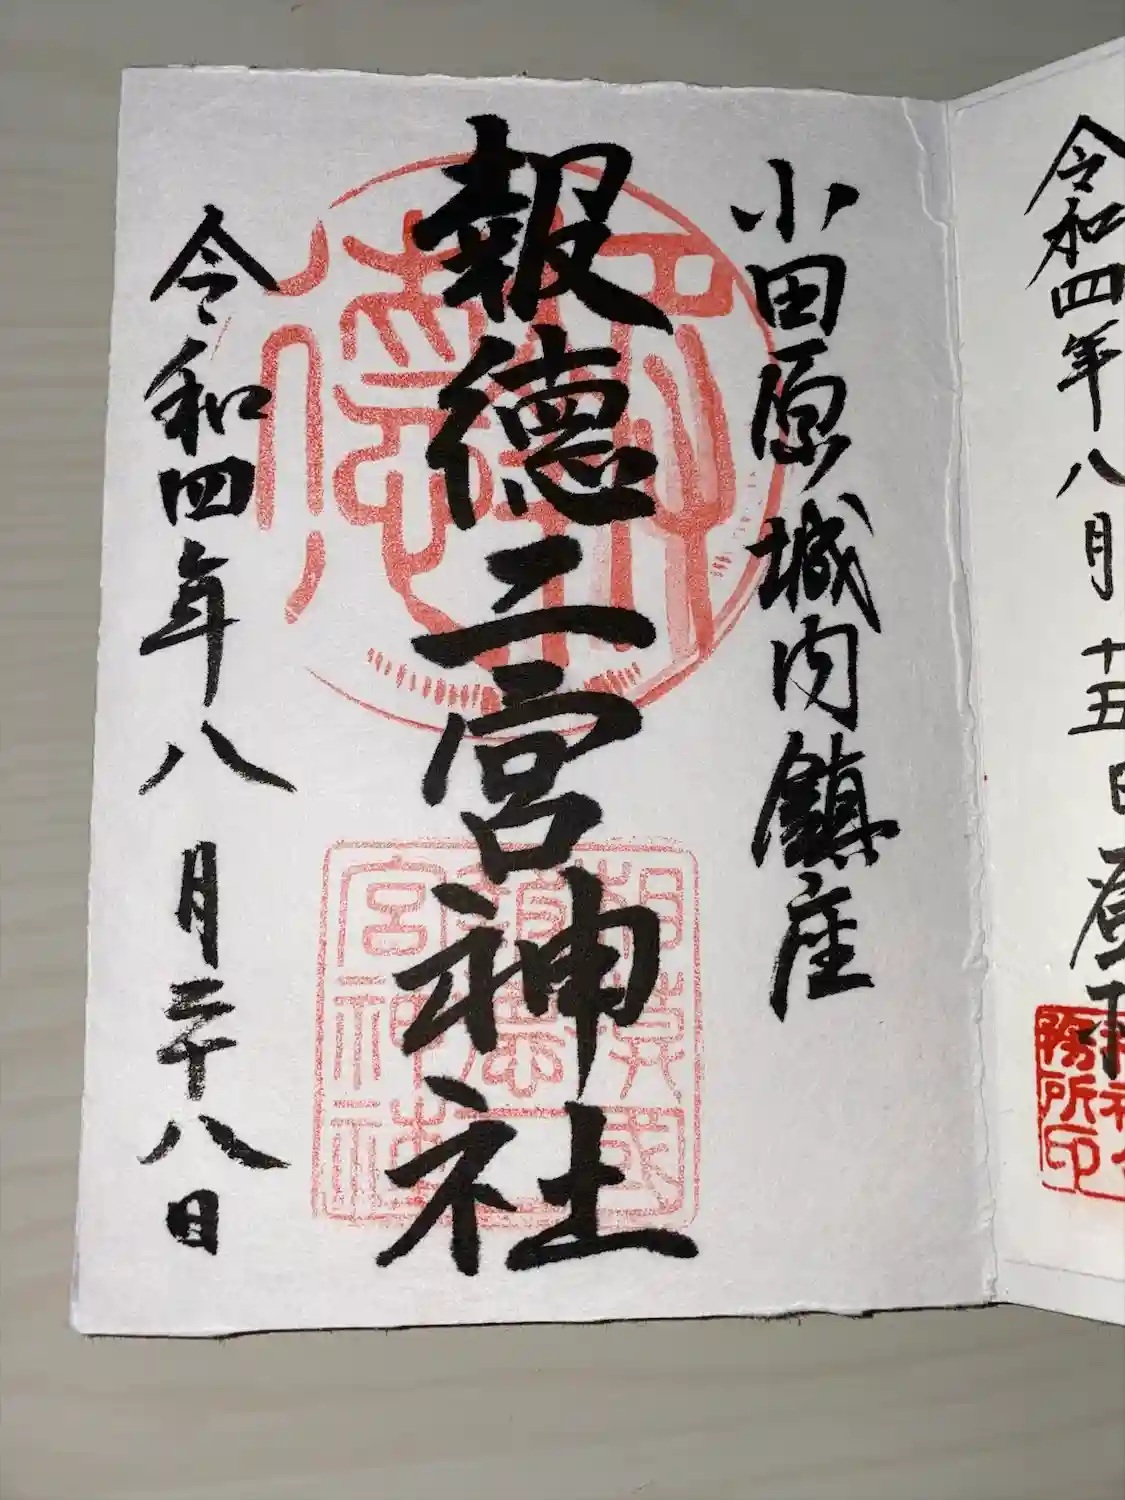 令和四年八月十五日
務所印
小田原城内鎮座
報徳二宮神社
相模國
報徳二
宮神社
令和四年八月二十八日